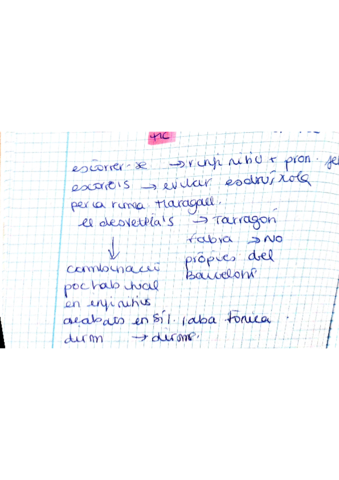 TIC
escórrer-se → r.infinitiu + pron. fe
escorreis → evitar esdrúixola
per la rima Maragall.
el desvetlla's → Tarragon
↓ Fabra → No
combinació pròpies del
poc habitual Barceloní
en infinitius
acabats en síl. laba tònica.
dirm → dirme